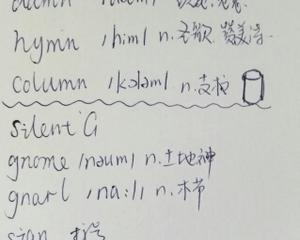 hymn /him/ n.圣歌. 赞美诗
column /kɔləm/ n.支柱
silent G
gnome /nəum/ n.土地神
gnarl /na:l/ n.木节
sign